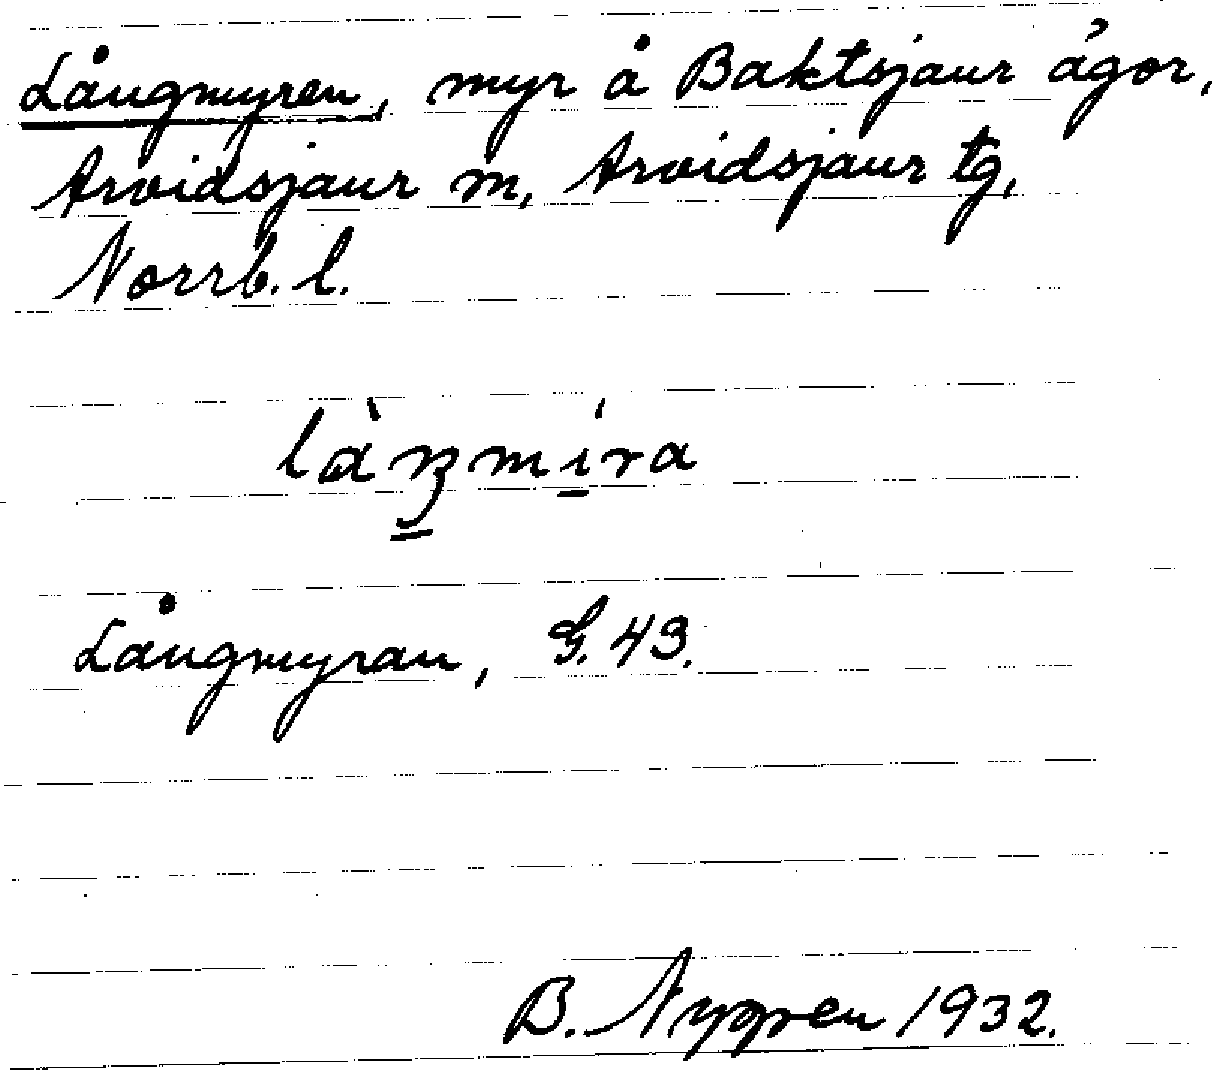 Långmyren, myr å Baktsjaur ägor,
Arvidsjaur m, Arvidsjaur tg,
Norrb. l.
Långmyran, G. 43.
B. Nygren 1932.